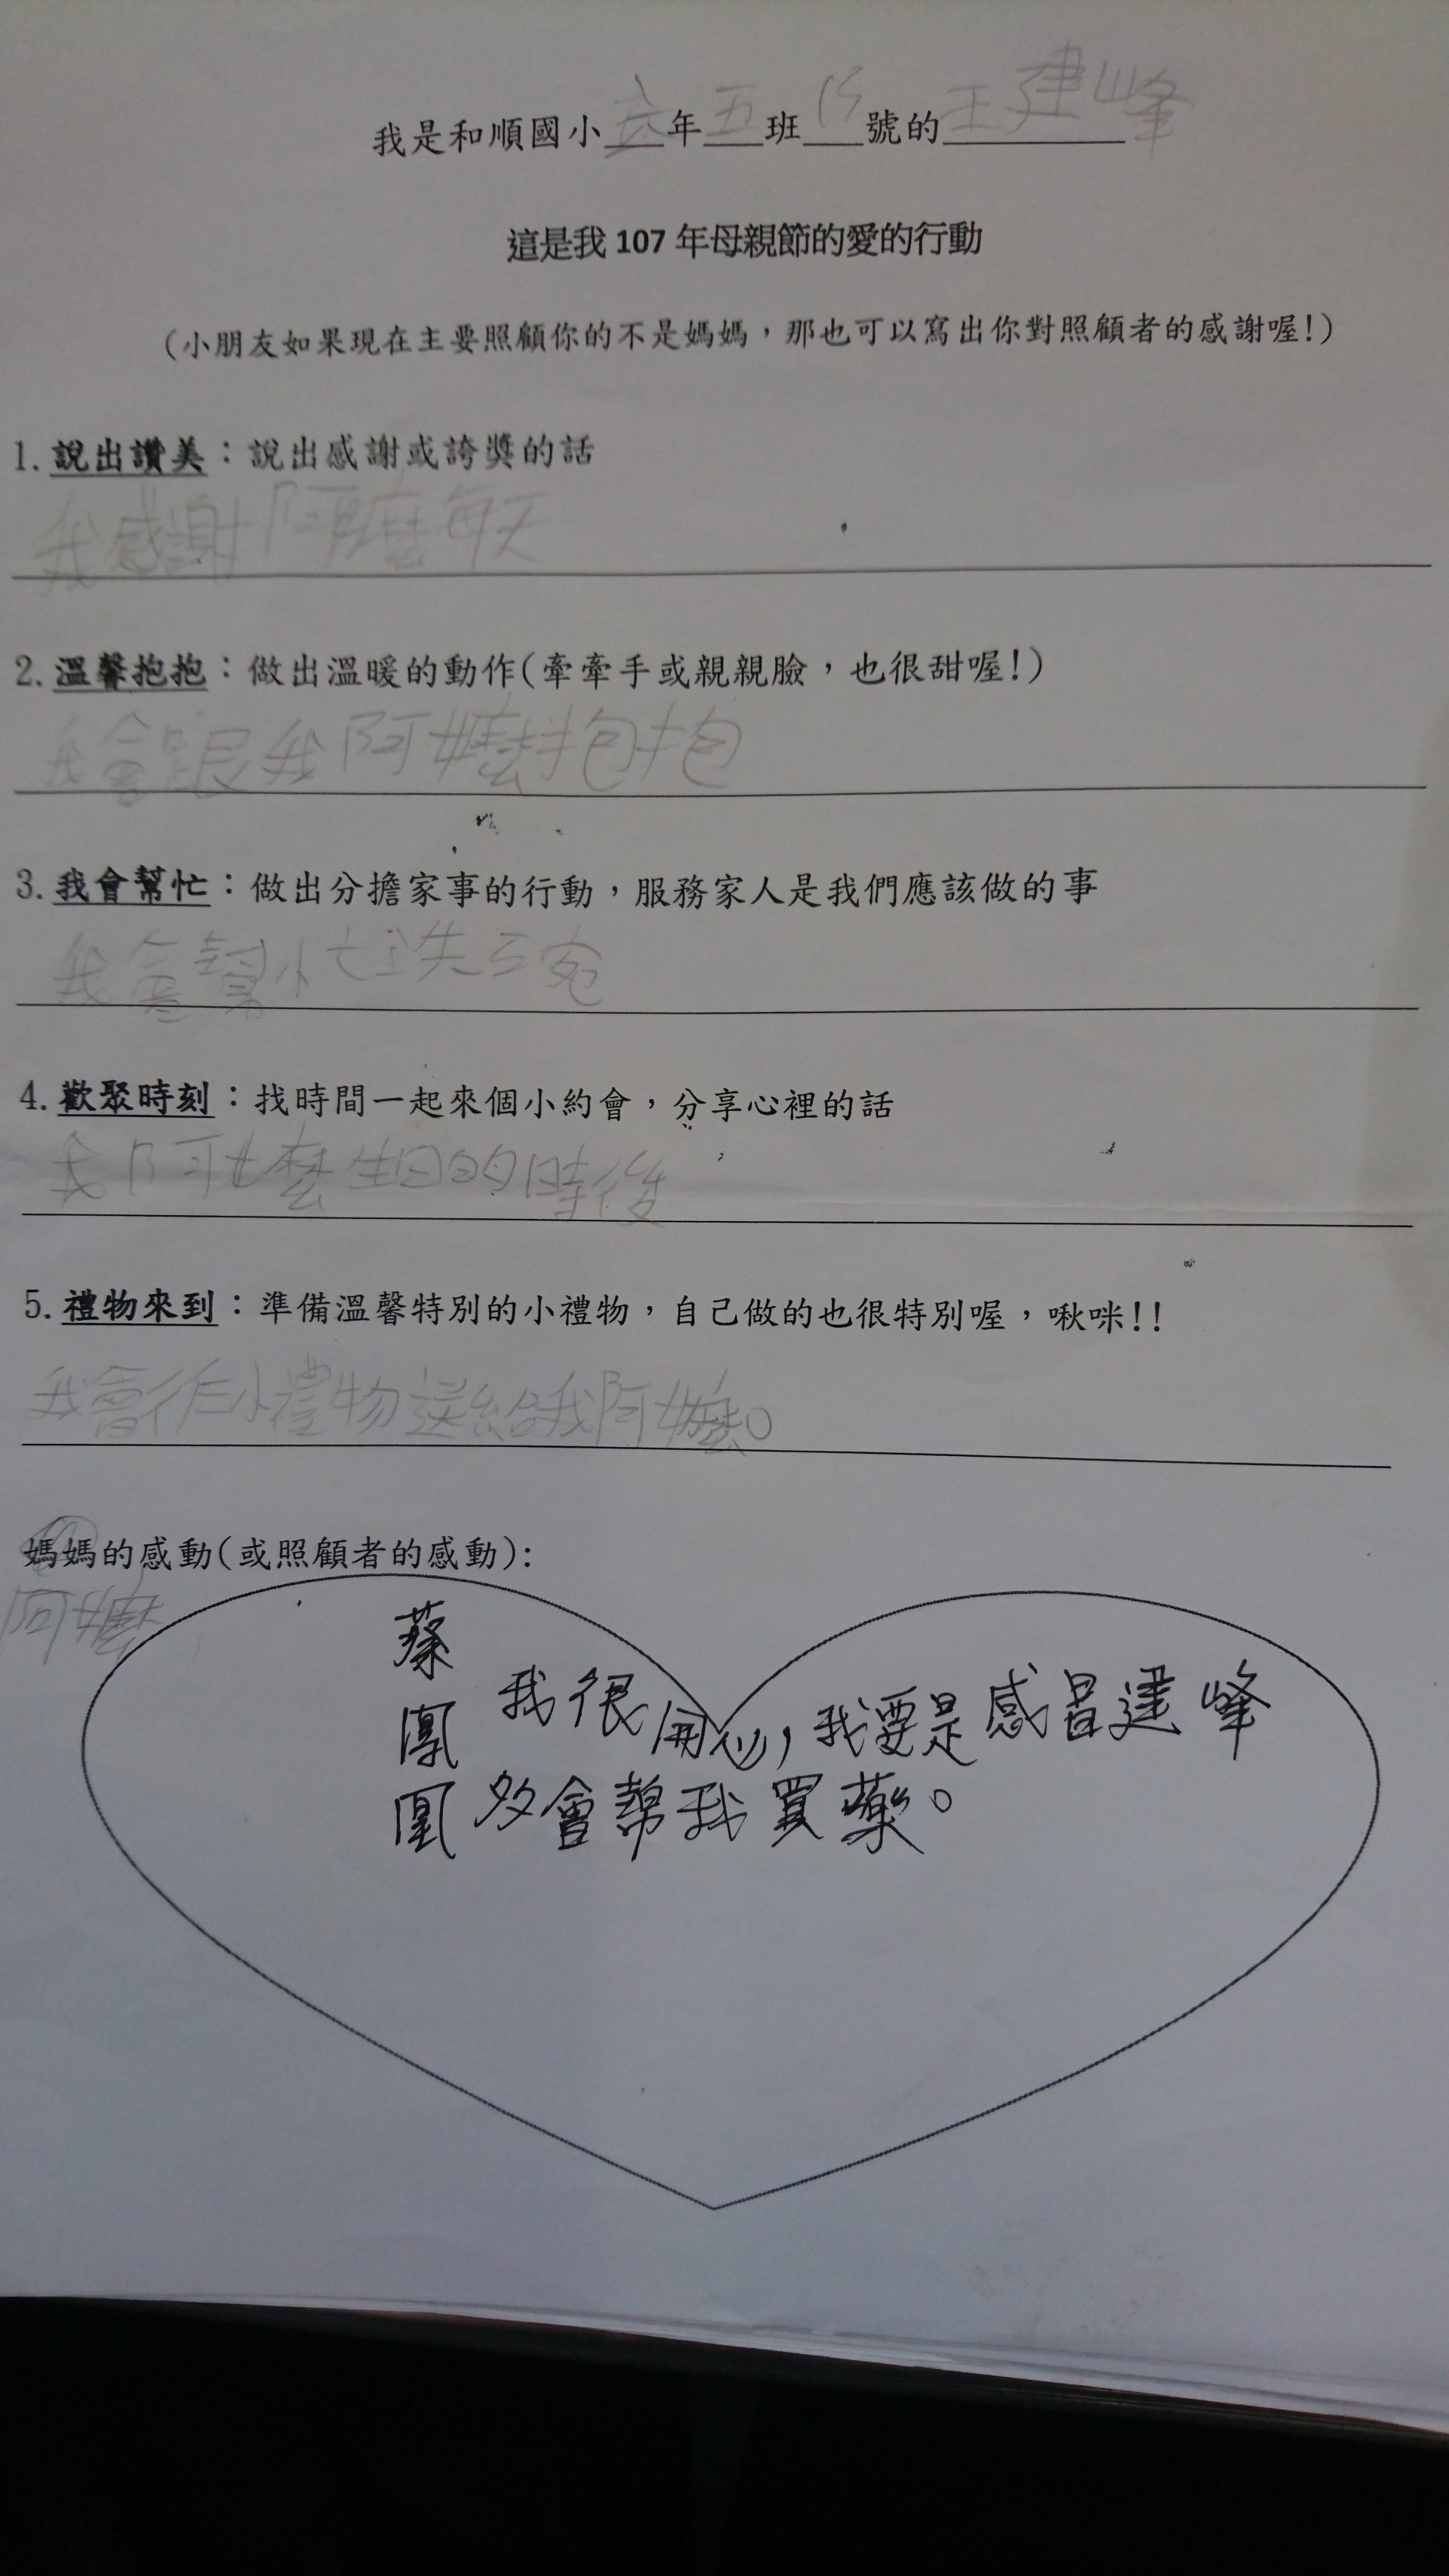 我是和順國小六年五班 號的王建峰
這是我107年母親節的愛的行動
(小朋友如果現在主要照顧你的不是媽媽，那也可以寫出你對照顧者的感謝喔!)
1.說出讚美：說出感謝或誇獎的話
我感謝阿嬤每天
2.溫馨抱抱：做出溫暖的動作(牽牽手或親親臉，也很甜喔!)
我會跟我阿嬤抱抱
3.我會幫忙：做出分擔家事的行動，服務家人是我們應該做的事
我會幫忙洗碗
4.歡聚時刻：找時間一起來個小約會，分享心裡的話
我阿嬤生日的時後
5.禮物來到：準備溫馨特別的小禮物，自己做的也很特別喔，啾咪!!
我會 小禮物送給我阿嬤。
媽媽的感動(或照顧者的感動):
阿嬤
蔡鳳凰
我很開心，我要是感 建峰
多會幫我買藥。